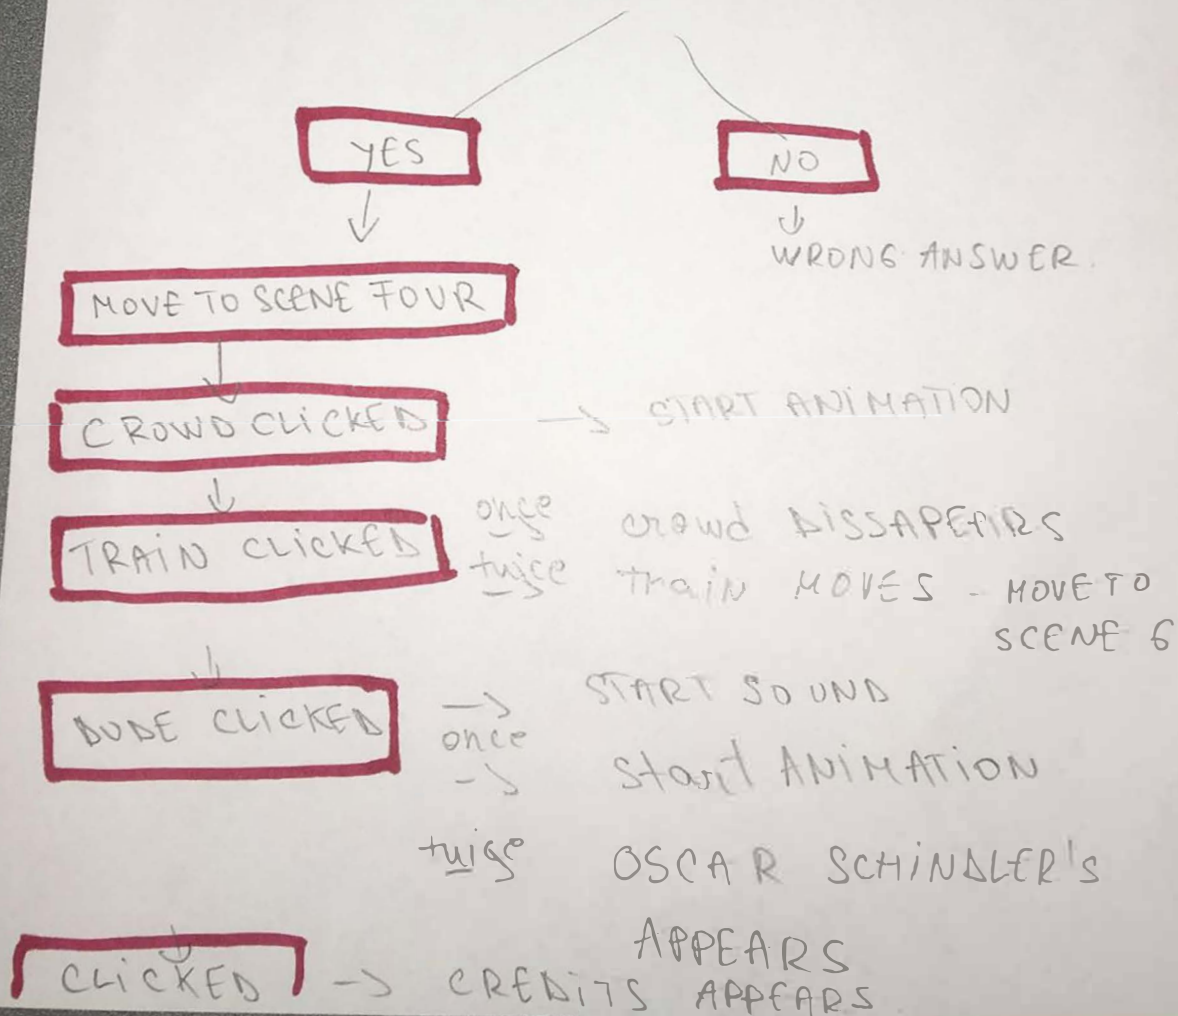 YES
NO
WRONG ANSWER.
MOVE TO SCENE FOUR
CROWD CLICKED → START ANIMATION
TRAIN CLICKED once crowd DISSAPEARS
twice train MOVES - MOVE TO
SCENE 6
DUDE CLICKED → START SOUND
once
→ Start ANIMATION
twise OSCAR SCHINDLER's
APPEARS
CLICKED → CREDITS APPEARS